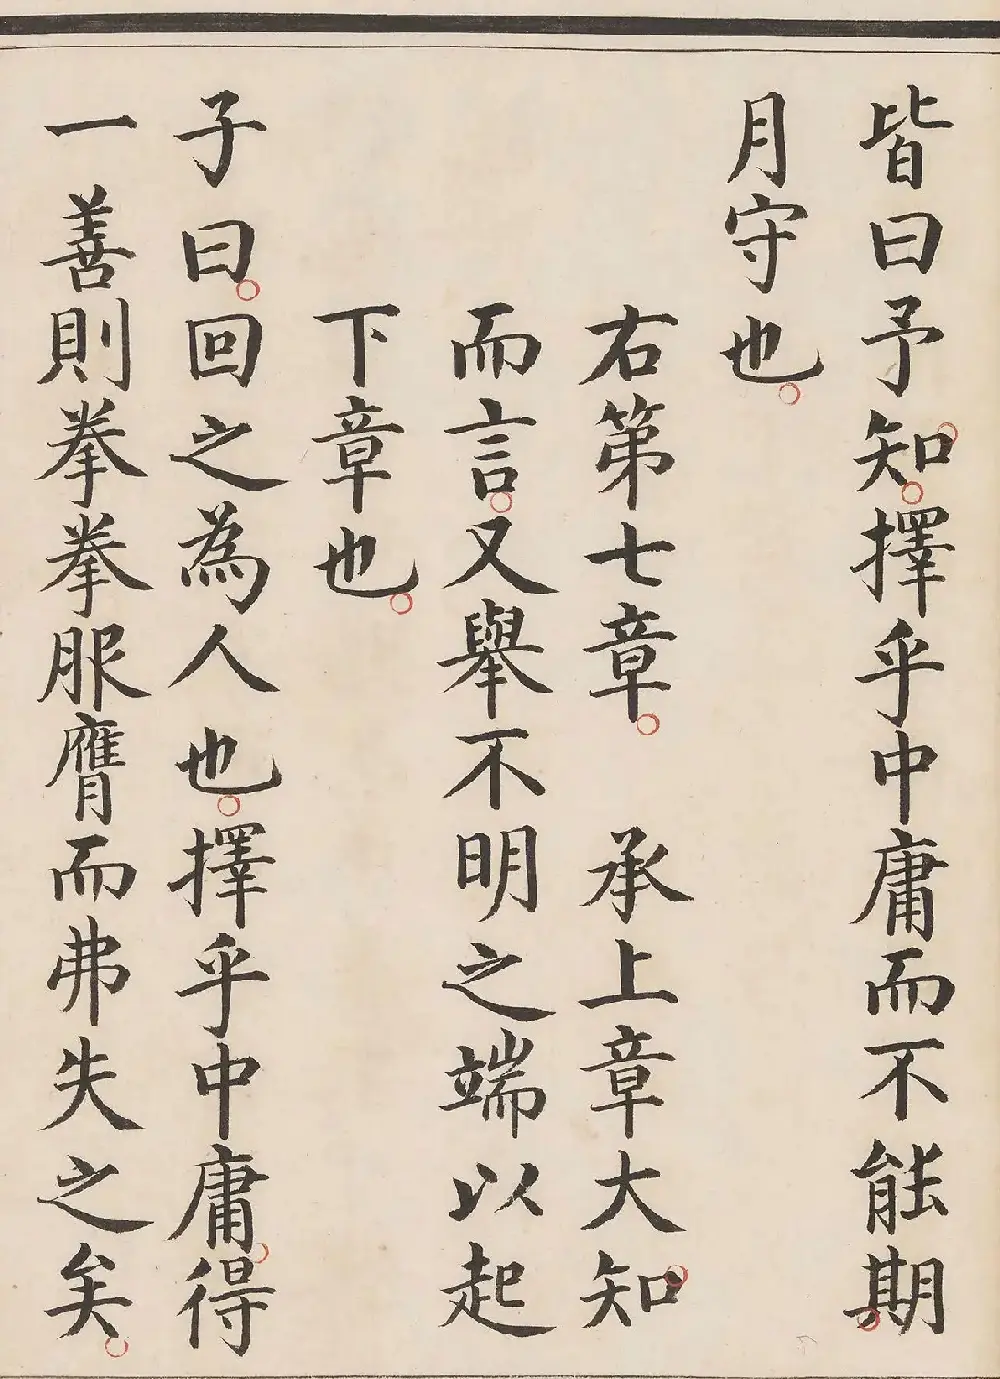 皆曰予知擇乎中庸而不能期
月守也
右第七章　承上章大知
而言又舉不明之端以起
下章也
子曰回之為人也擇乎中庸得
一善則拳拳服膺而弗失之矣